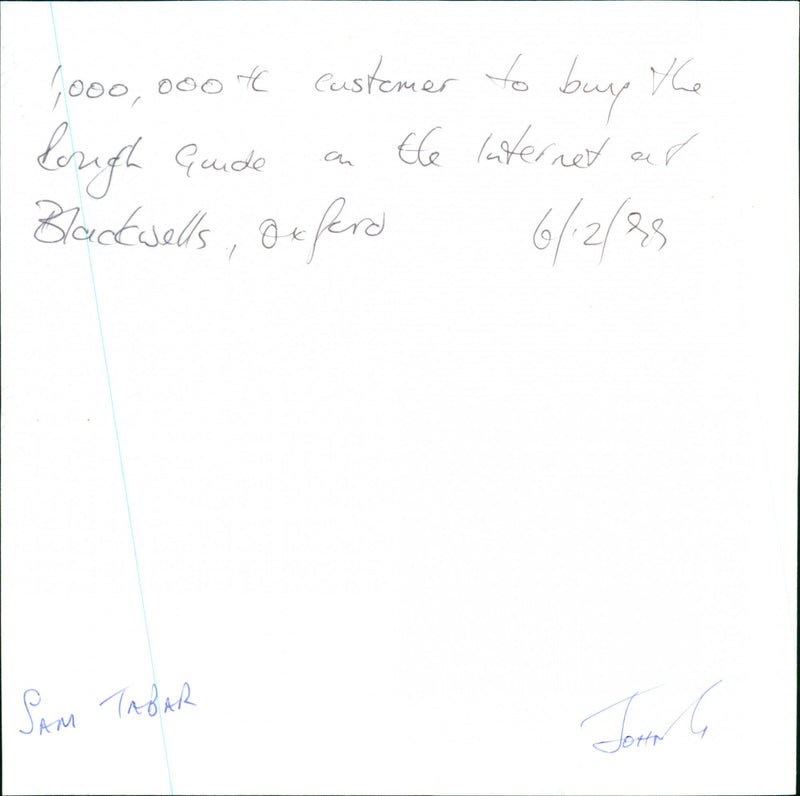 1,000,000th customer to buy the
Rough Guide on the Internet at
Blackwells, Oxford 6/2/99
SAM TABAR JOHN G